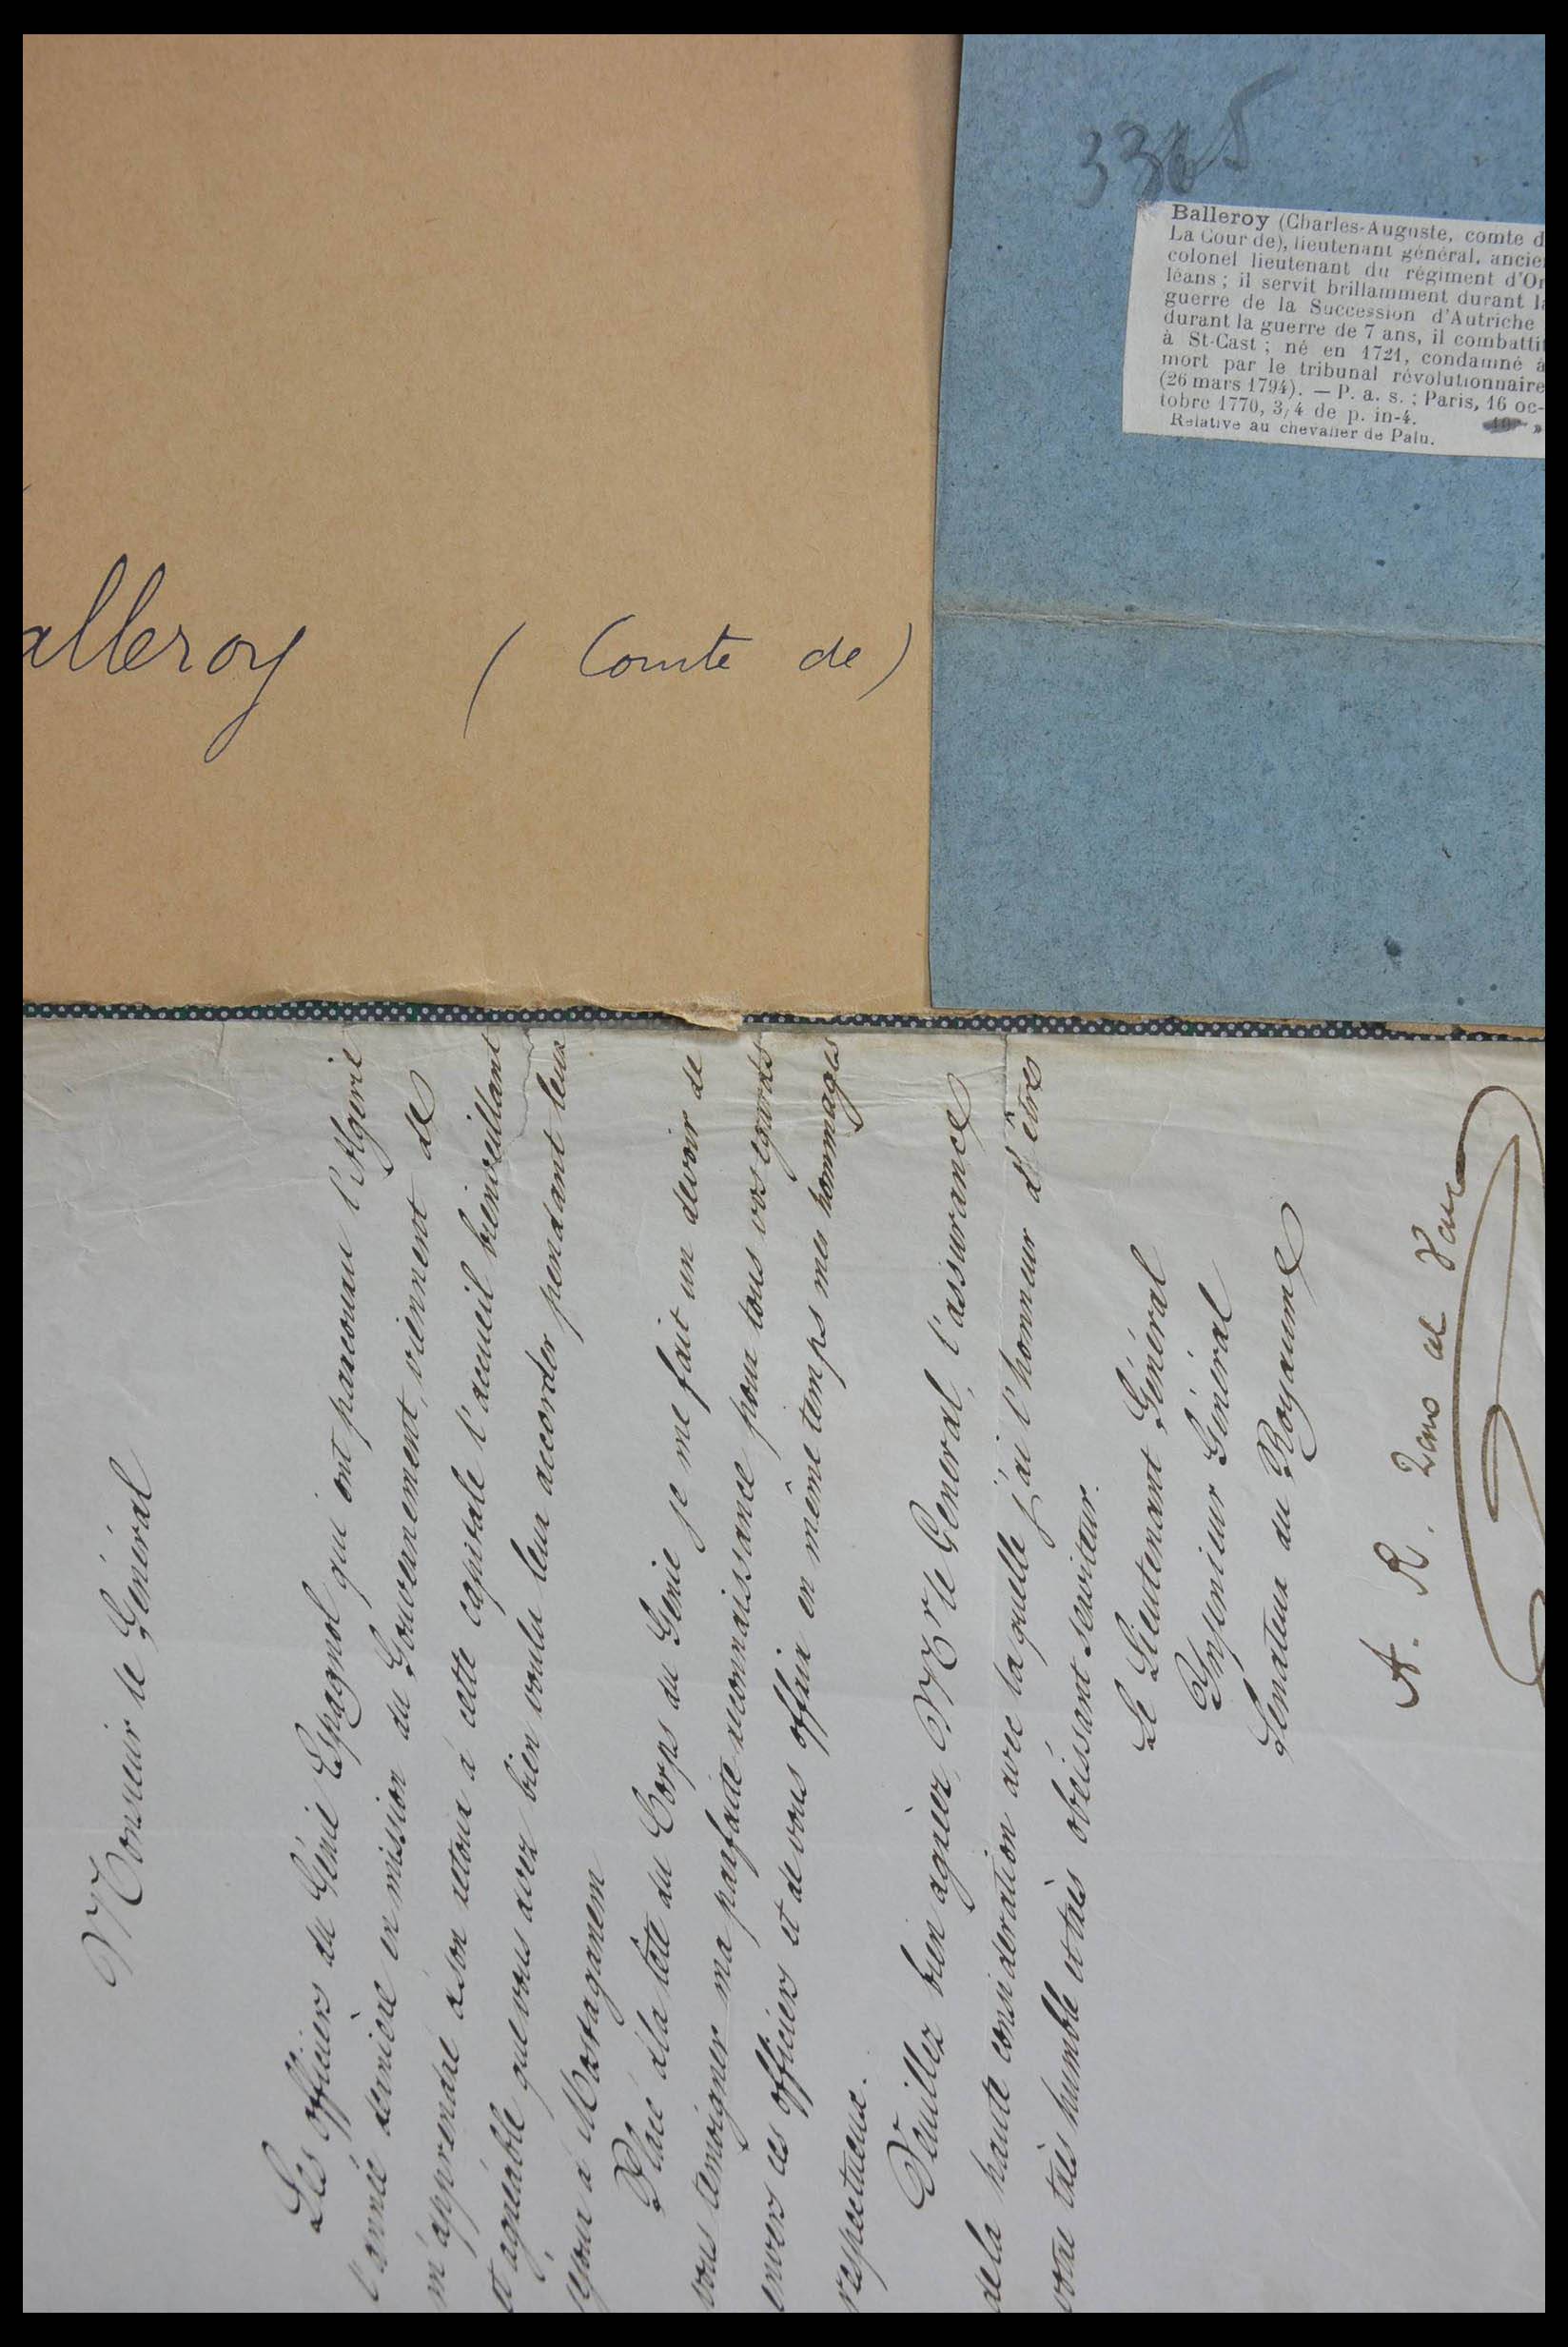 alleroy ( Comte de)
3365
Balleroy (Charles-Auguste, comte d
La Cour de), lieutenant général, ancie
colonel lieutenant du régiment d'Or
léans ; il servit brillamment durant l
guerre de la Succession d'Autriche
durant la guerre de 7 ans, il combattit
à St-Cast ; né en 1721, condamné à
mort par le tribunal révolutionnaire
(26 mars 1794). — P. a. s. ; Paris, 16 oc-
tobre 1770, 3/4 de p. in-4.
Relative au chevalier de Palu.
Monsieur le Général
Les officiers du Génie Espagnol qui ont parcouru l'Algerie
l'année dernière en mission du Gouvernement, viennent de
m'apprendre a son retour a cette capitale l'accueil bienveillant
et agréable que vous avez bien voulu leur accorder pendant leur
séjour a Mostaganem
Placé a la tête du Corps du Genie je me fait un devoir de
vous temoigner ma parfaite reconnaissance pour tous vos egards
envers ces officiers et de vous offrir en même temps mes hommages
respectueux.
Veuillez bien agréer, Mr le General, l'assurance
de la haute consideration avec la quelle j'ai l'honneur d'être
votre très humble et très obéissant serviteur.
Le Lieutenant Général
Ingenieur Général
Senateur du Royaume
A. R. Zarco del Valle